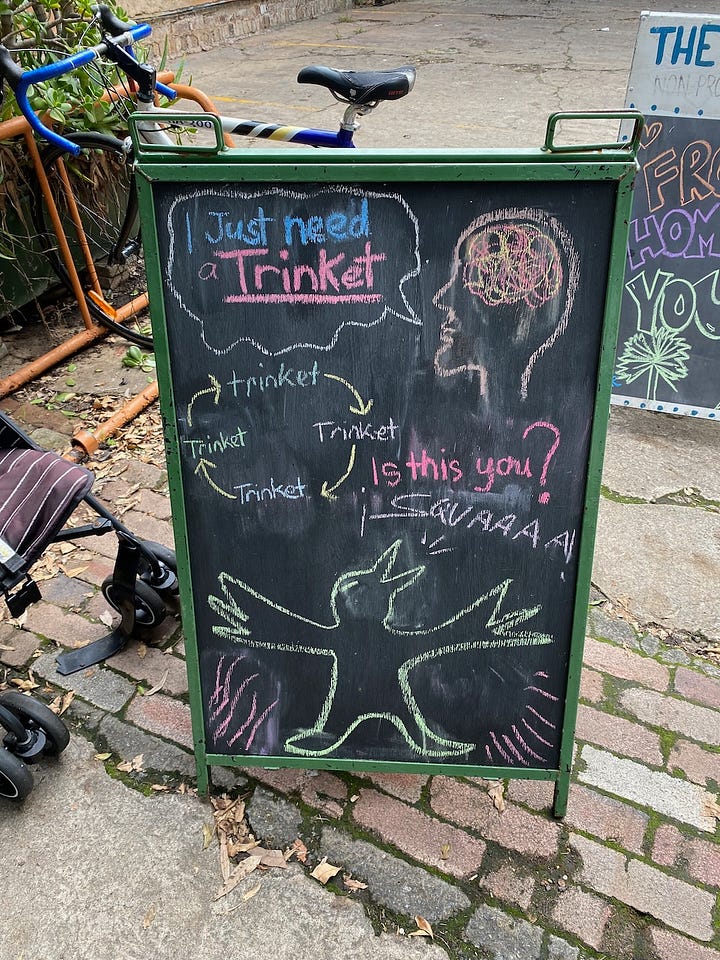 I Just need
a Trinket
trinket
Trinket
Trinket
Trinket
Is this you?
¡SQUAAAA
THE
NON-PRO
FRO
HOM
YOU